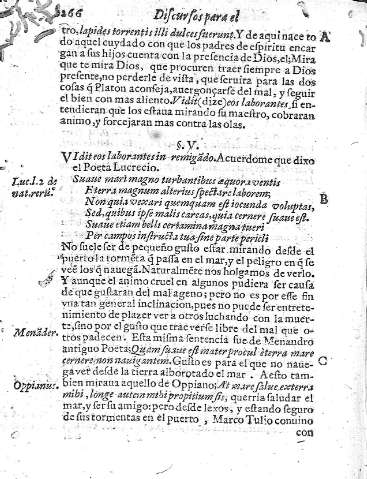 266 Discursos para el
tro, lapides torrentis illi dulces fuerunt. Y de aqui nace to A
do aquel cuydado con que los padres de espiritu encar
gan a sus hijos cuenta con la presencia de Dios, el: Mira
que te mira Dios, que procuren traer siempre a Dios
presente, no perderle de vista, que seruira para las dos
cosas q̃ Platon aconseja, auergonçarse del mal, y seguir
el bien con mas aliento. Vidit (dize) eos laborantes, si en-
tendieran que los estaua mirando su maestro, cobraran
animo, y forcejaran mas contra las olas.
§. V.
VIdit eos laborantes in remigãdo. Acuerdome que dixo
el Poeta Lucrecio.
Luc. l. 2 de Suaue mari magno turbantibus æquora ventis
nat. rerũ. E terra magnum alterius spectare laborem;
Non quia vexari quemquam est iocunda voluptas, B
Sed, quibus ipse malis careas, quia cernere suaue est.
Suaue etiam belli certamina magna tueri
Per campos instructa tua sine parte pericli
No suele ser de pequeño gusto estar mirando desde el
puerto la tormẽta q̃ passa en el mar, y el peligro en q̃ se
veẽ los q̃ nauegã. Naturalmẽte nos holgamos de verlo.
Y aunque el animo cruel en algunos pudiera ser causa
de que gustaran del mal ageno; pero no es por esse fin
vna tan general inclinacion, pues no puede ser entrete-
nimiento de plazer ver a otros luchando con la muer-
te, sino por el gusto que trae verse libre del mal que o-
Menãder. tros padecen. Esta misma sentencia fue de Menandro
antiguo Poeta: Quam suaue est mater procul è terra mare
cernere non nauigantem. Gusto es para el que no naue- C
ga ver desde la tierra alborotado el mar. A esto tam-
Oppianus. bien miraua aquello de Oppiano; At mare salue ex terra
mihi, longe autem mihi propitium sis, querria saludar el
mar, y ser su amigo: pero desde lexos, y estando seguro
de sus tormentas en el puerto, Marco Tulio conuino
con